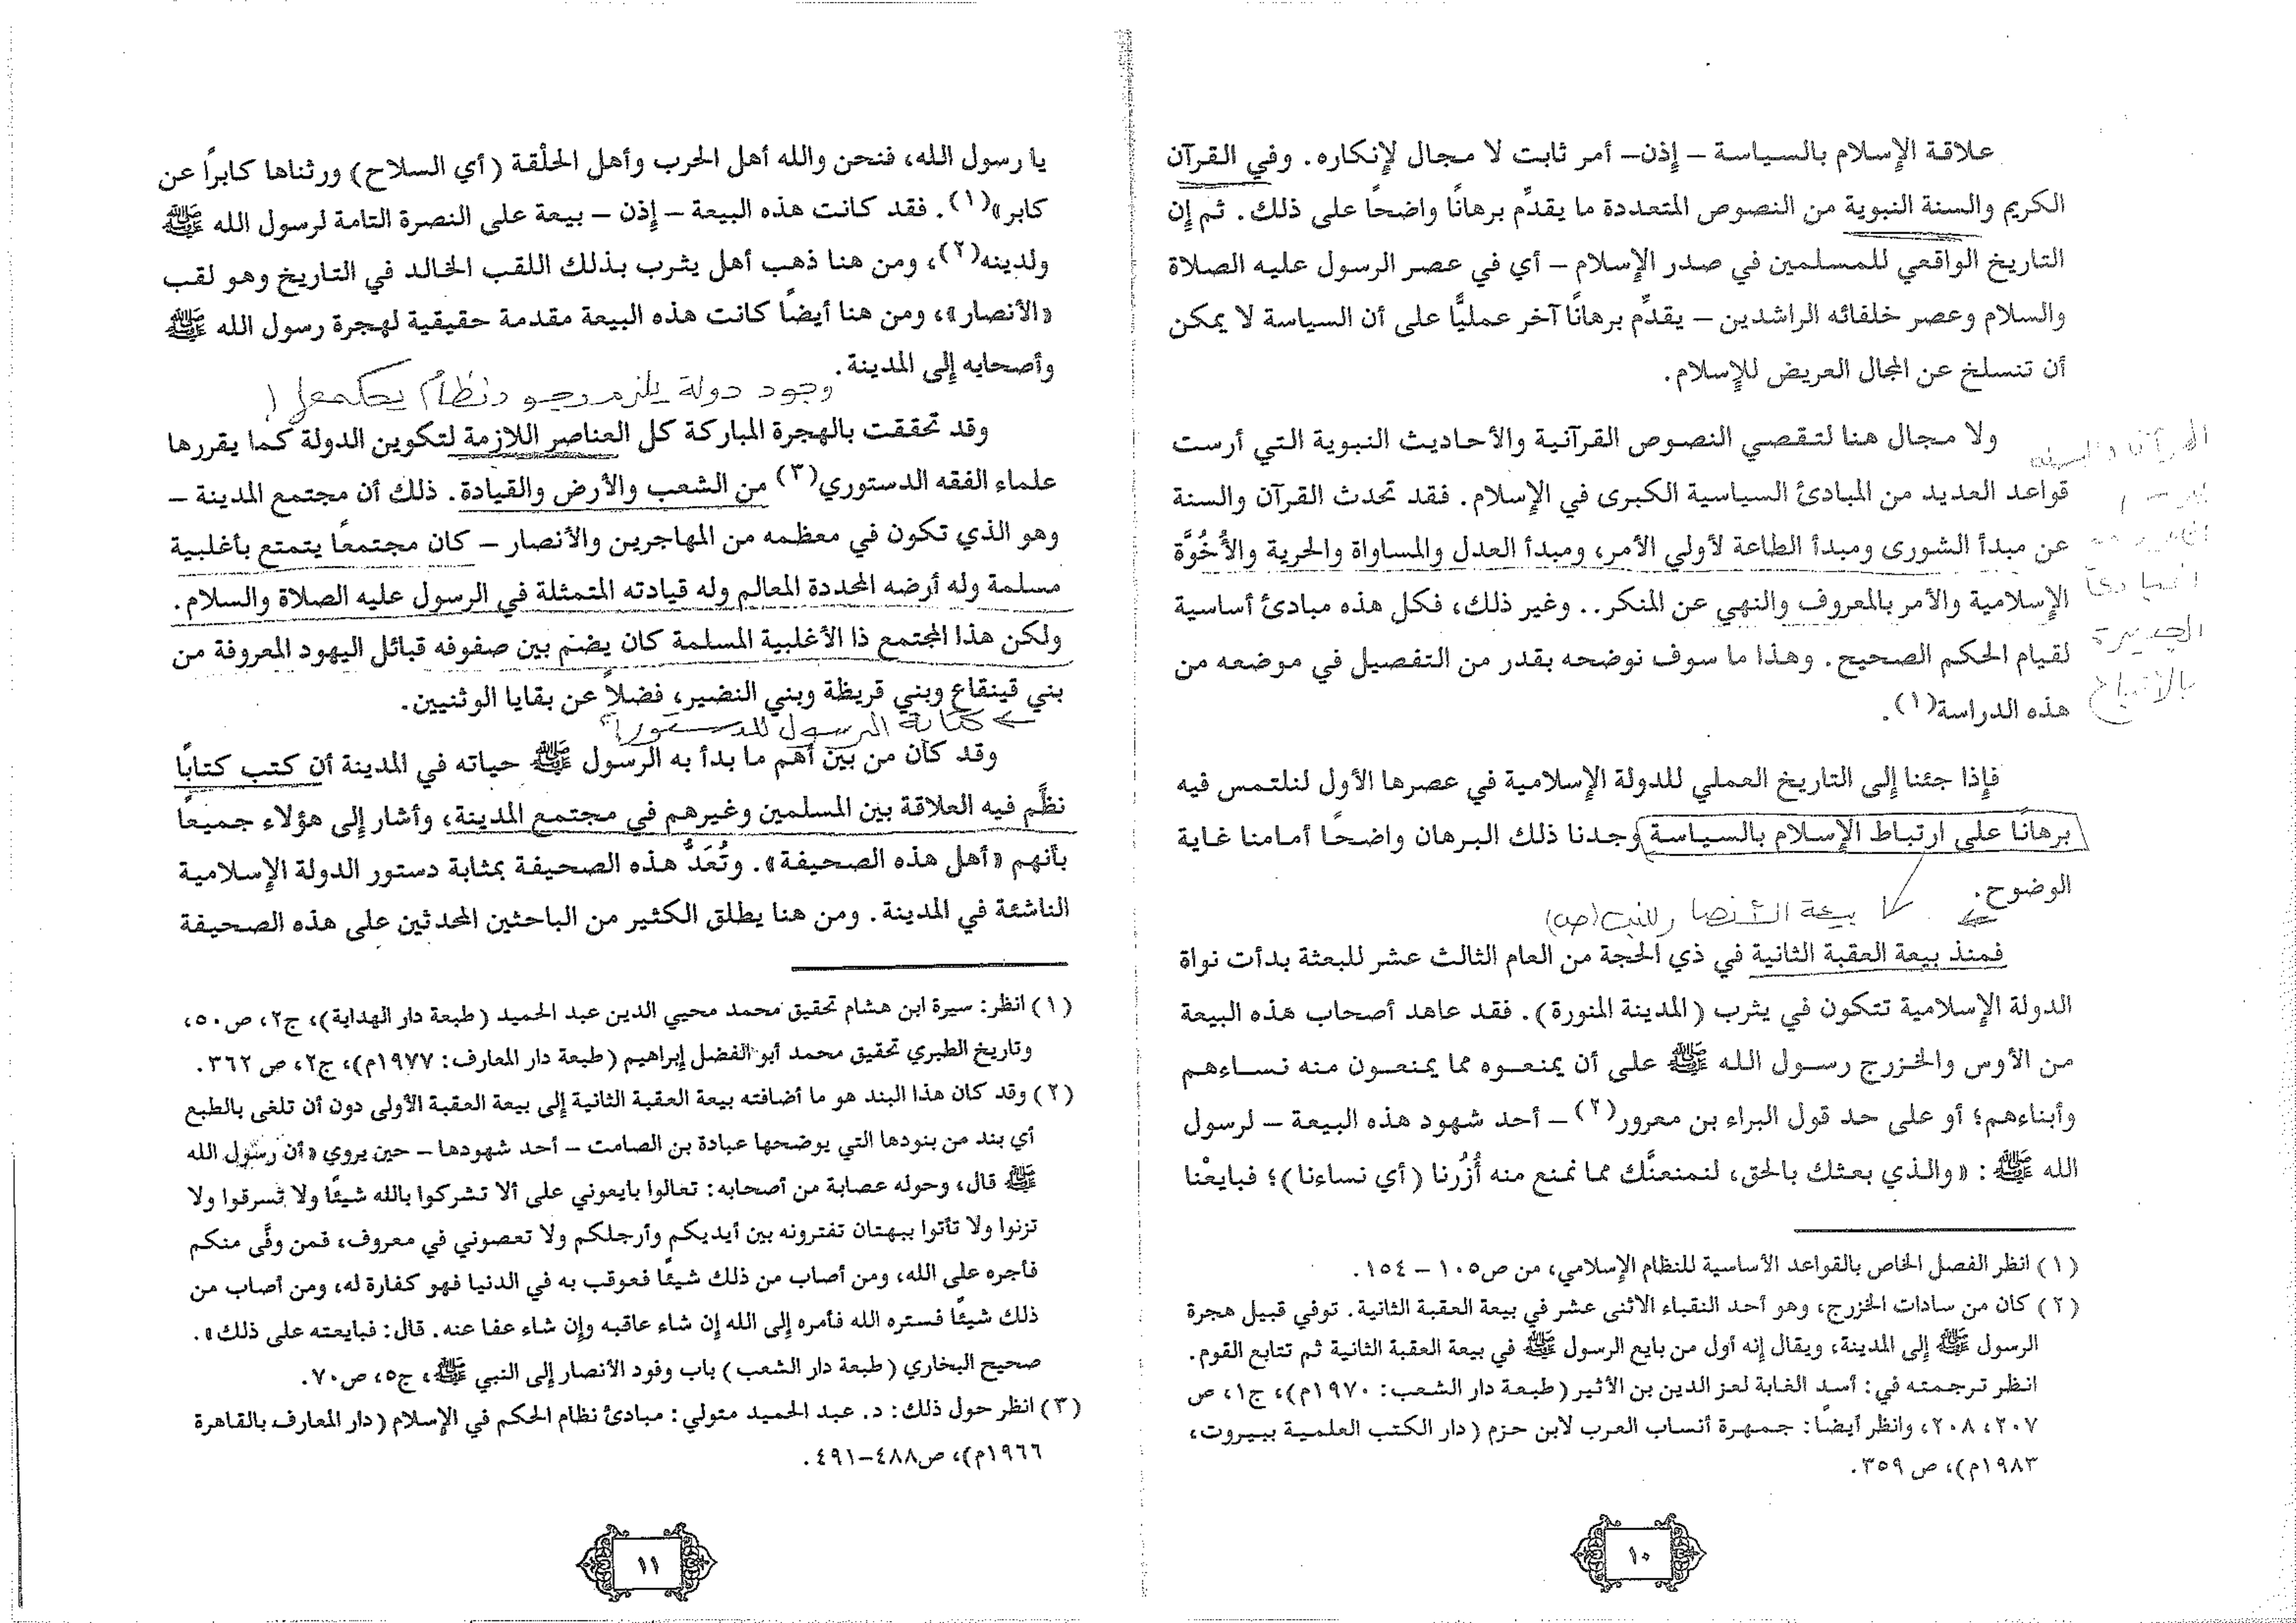 علاقة الإسلام بالسياسة – إذن– أمر ثابت لا مجال لإنكاره. وفي القرآن
الكريم والسنة النبوية من النصوص المتعددة ما يقدِّم برهانًا واضحًا على ذلك. ثم إن
التاريخ الواقعي للمسلمين في صدر الإسلام – أي في عصر الرسول عليه الصلاة
والسلام وعصر خلفائه الراشدين – يقدِّم برهانًا آخر عمليًّا على أن السياسة لا يمكن
أن تنسلخ عن المجال العريض للإسلام.
ولا مجال هنا لتقصي النصوص القرآنية والأحاديث النبوية التي أرست
قواعد العديد من المبادئ السياسية الكبرى في الإسلام. فقد تحدث القرآن والسنة
عن مبدأ الشورى ومبدأ الطاعة لأولي الأمر، ومبدأ العدل والمساواة والحرية والأُخُوَّة
الإسلامية والأمر بالمعروف والنهي عن المنكر.. وغير ذلك، فكل هذه مبادئ أساسية
لقيام الحكم الصحيح. وهذا ما سوف نوضحه بقدر من التفصيل في موضعه من
هذه الدراسة(١).
القرآن والسنة
المبادئ
الجديرة
بالاتباع
فإذا جئنا إلى التاريخ العملي للدولة الإسلامية في عصرها الأول لنلتمس فيه
برهانًا على ارتباط الإسلام بالسياسة وجدنا ذلك البرهان واضحًا أمامنا غاية
الوضوح.
بيعة الأنصار للنبي (ص)
فمنذ بيعة العقبة الثانية في ذي الحجة من العام الثالث عشر للبعثة بدأت نواة
الدولة الإسلامية تتكون في يثرب (المدينة المنورة). فقد عاهد أصحاب هذه البيعة
من الأوس والخزرج رسول الله ﷺ على أن يمنعوه مما يمنعون منه نساءهم
وأبناءهم؛ أو على حد قول البراء بن معرور(٢) – أحد شهود هذه البيعة – لرسول
الله ﷺ : «والذي بعثك بالحق، لنمنعنَّك مما نمنع منه أُزُرنا (أي نساءنا)؛ فبايعْنا
(١) انظر الفصل الخاص بالقواعد الأساسية للنظام الإسلامي، من ص١٠٥ – ١٥٤.
(٢) كان من سادات الخزرج، وهو أحد النقباء الاثنى عشر في بيعة العقبة الثانية. توفي قبيل هجرة
الرسول ﷺ إلى المدينة، ويقال إنه أول من بايع الرسول ﷺ في بيعة العقبة الثانية ثم تتابع القوم.
انظر ترجمته في: أسد الغابة لعز الدين بن الأثير (طبعة دار الشعب: ١٩٧٠م)، ج١، ص
٢٠٧، ٢٠٨، وانظر أيضًا: جمهرة أنساب العرب لابن حزم (دار الكتب العلمية ببيروت،
١٩٨٣م)، ص ٣٥٩.
١٠
يا رسول الله، فنحن والله أهل الحرب وأهل الحلْقة (أي السلاح) ورثناها كابراً عن
كابر»(١). فقد كانت هذه البيعة – إذن – بيعة على النصرة التامة لرسول الله ﷺ
ولدينه(٢)، ومن هنا ذهب أهل يثرب بذلك اللقب الخالد في التاريخ وهو لقب
«الأنصار»، ومن هنا أيضًا كانت هذه البيعة مقدمة حقيقية لهجرة رسول الله ﷺ
وأصحابه إلى المدينة.
وجود دولة يلزم وجود نظام يحكمها
وقد تحققت بالهجرة المباركة كل العناصر اللازمة لتكوين الدولة كما يقررها
علماء الفقه الدستوري(٣) من الشعب والأرض والقيادة. ذلك أن مجتمع المدينة –
وهو الذي تكون في معظمه من المهاجرين والأنصار – كان مجتمعًا يتمتع بأغلبية
مسلمة وله أرضه المحددة المعالم وله قيادته المتمثلة في الرسول عليه الصلاة والسلام.
ولكن هذا المجتمع ذا الأغلبية المسلمة كان يضم بين صفوفه قبائل اليهود المعروفة من
بني قينقاع وبني قريظة وبني النضير، فضلاً عن بقايا الوثنيين.
كتابة الرسول للدستور
وقد كان من بين أهم ما بدأ به الرسول ﷺ حياته في المدينة أن كتب كتابًا
نظَّم فيه العلاقة بين المسلمين وغيرهم في مجتمع المدينة، وأشار إلى هؤلاء جميعًا
بأنهم «أهل هذه الصحيفة». وتُعَدُّ هذه الصحيفة بمثابة دستور الدولة الإسلامية
الناشئة في المدينة. ومن هنا يطلق الكثير من الباحثين المحدثين على هذه الصحيفة
(١) انظر: سيرة ابن هشام تحقيق محمد محيي الدين عبد الحميد (طبعة دار الهداية)، ج٢، ص٥٠،
وتاريخ الطبري تحقيق محمد أبو الفضل إبراهيم (طبعة دار المعارف: ١٩٧٧م)، ج٢، ص ٣٦٢.
(٢) وقد كان هذا البند هو ما أضافته بيعة العقبة الثانية إلى بيعة العقبة الأولى دون أن تلغى بالطبع
أي بند من بنودها التي يوضحها عبادة بن الصامت – أحد شهودها – حين يروي «أن رسول الله
ﷺ قال، وحوله عصابة من أصحابه: تعالوا بايعوني على ألا تشركوا بالله شيئًا ولا تسرقوا ولا
تزنوا ولا تأتوا ببهتان تفترونه بين أيديكم وأرجلكم ولا تعصوني في معروف، فمن وفَّى منكم
فأجره على الله، ومن أصاب من ذلك شيئًا فعوقب به في الدنيا فهو كفارة له، ومن أصاب من
ذلك شيئًا فستره الله فأمره إلى الله إن شاء عاقبه وإن شاء عفا عنه. قال: فبايعته على ذلك».
صحيح البخاري (طبعة دار الشعب) باب وفود الأنصار إلى النبي ﷺ، ج٥، ص٧٠.
(٣) انظر حول ذلك: د. عبد الحميد متولي: مبادئ نظام الحكم في الإسلام (دار المعارف بالقاهرة
١٩٦٦م)، ص٤٨٨–٤٩١.
١١